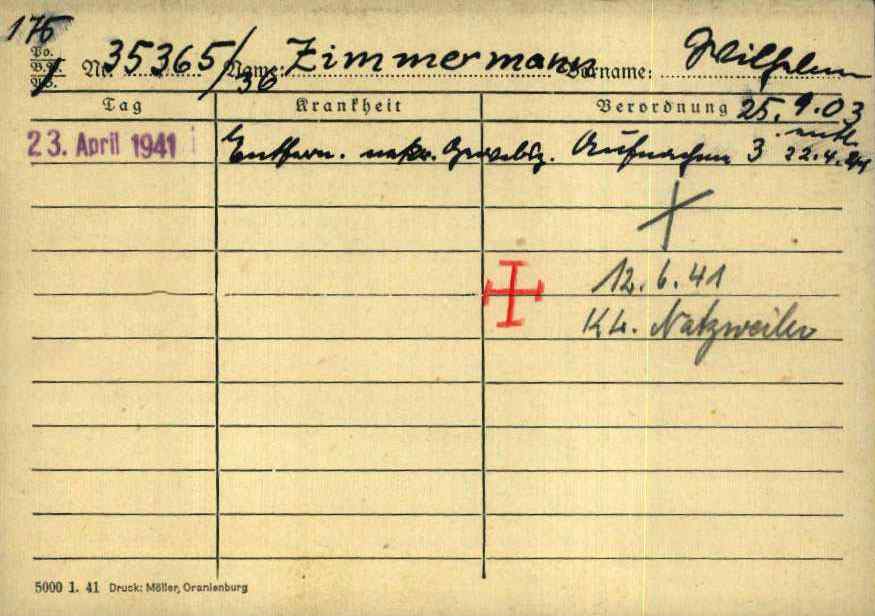 175
Po.
B.V.
No. Nr. 35365/36 Name: Zimmermann Vorname: Wilhelm
Tag Krankheit Verordnung 25.9.03
23. April 1941 Entfern. nekr. Aufnahme 3 entl. 22.4.41
12.6.41
KL. Natzweiler
5000 1. 41 Druck: Möller, Oranienburg